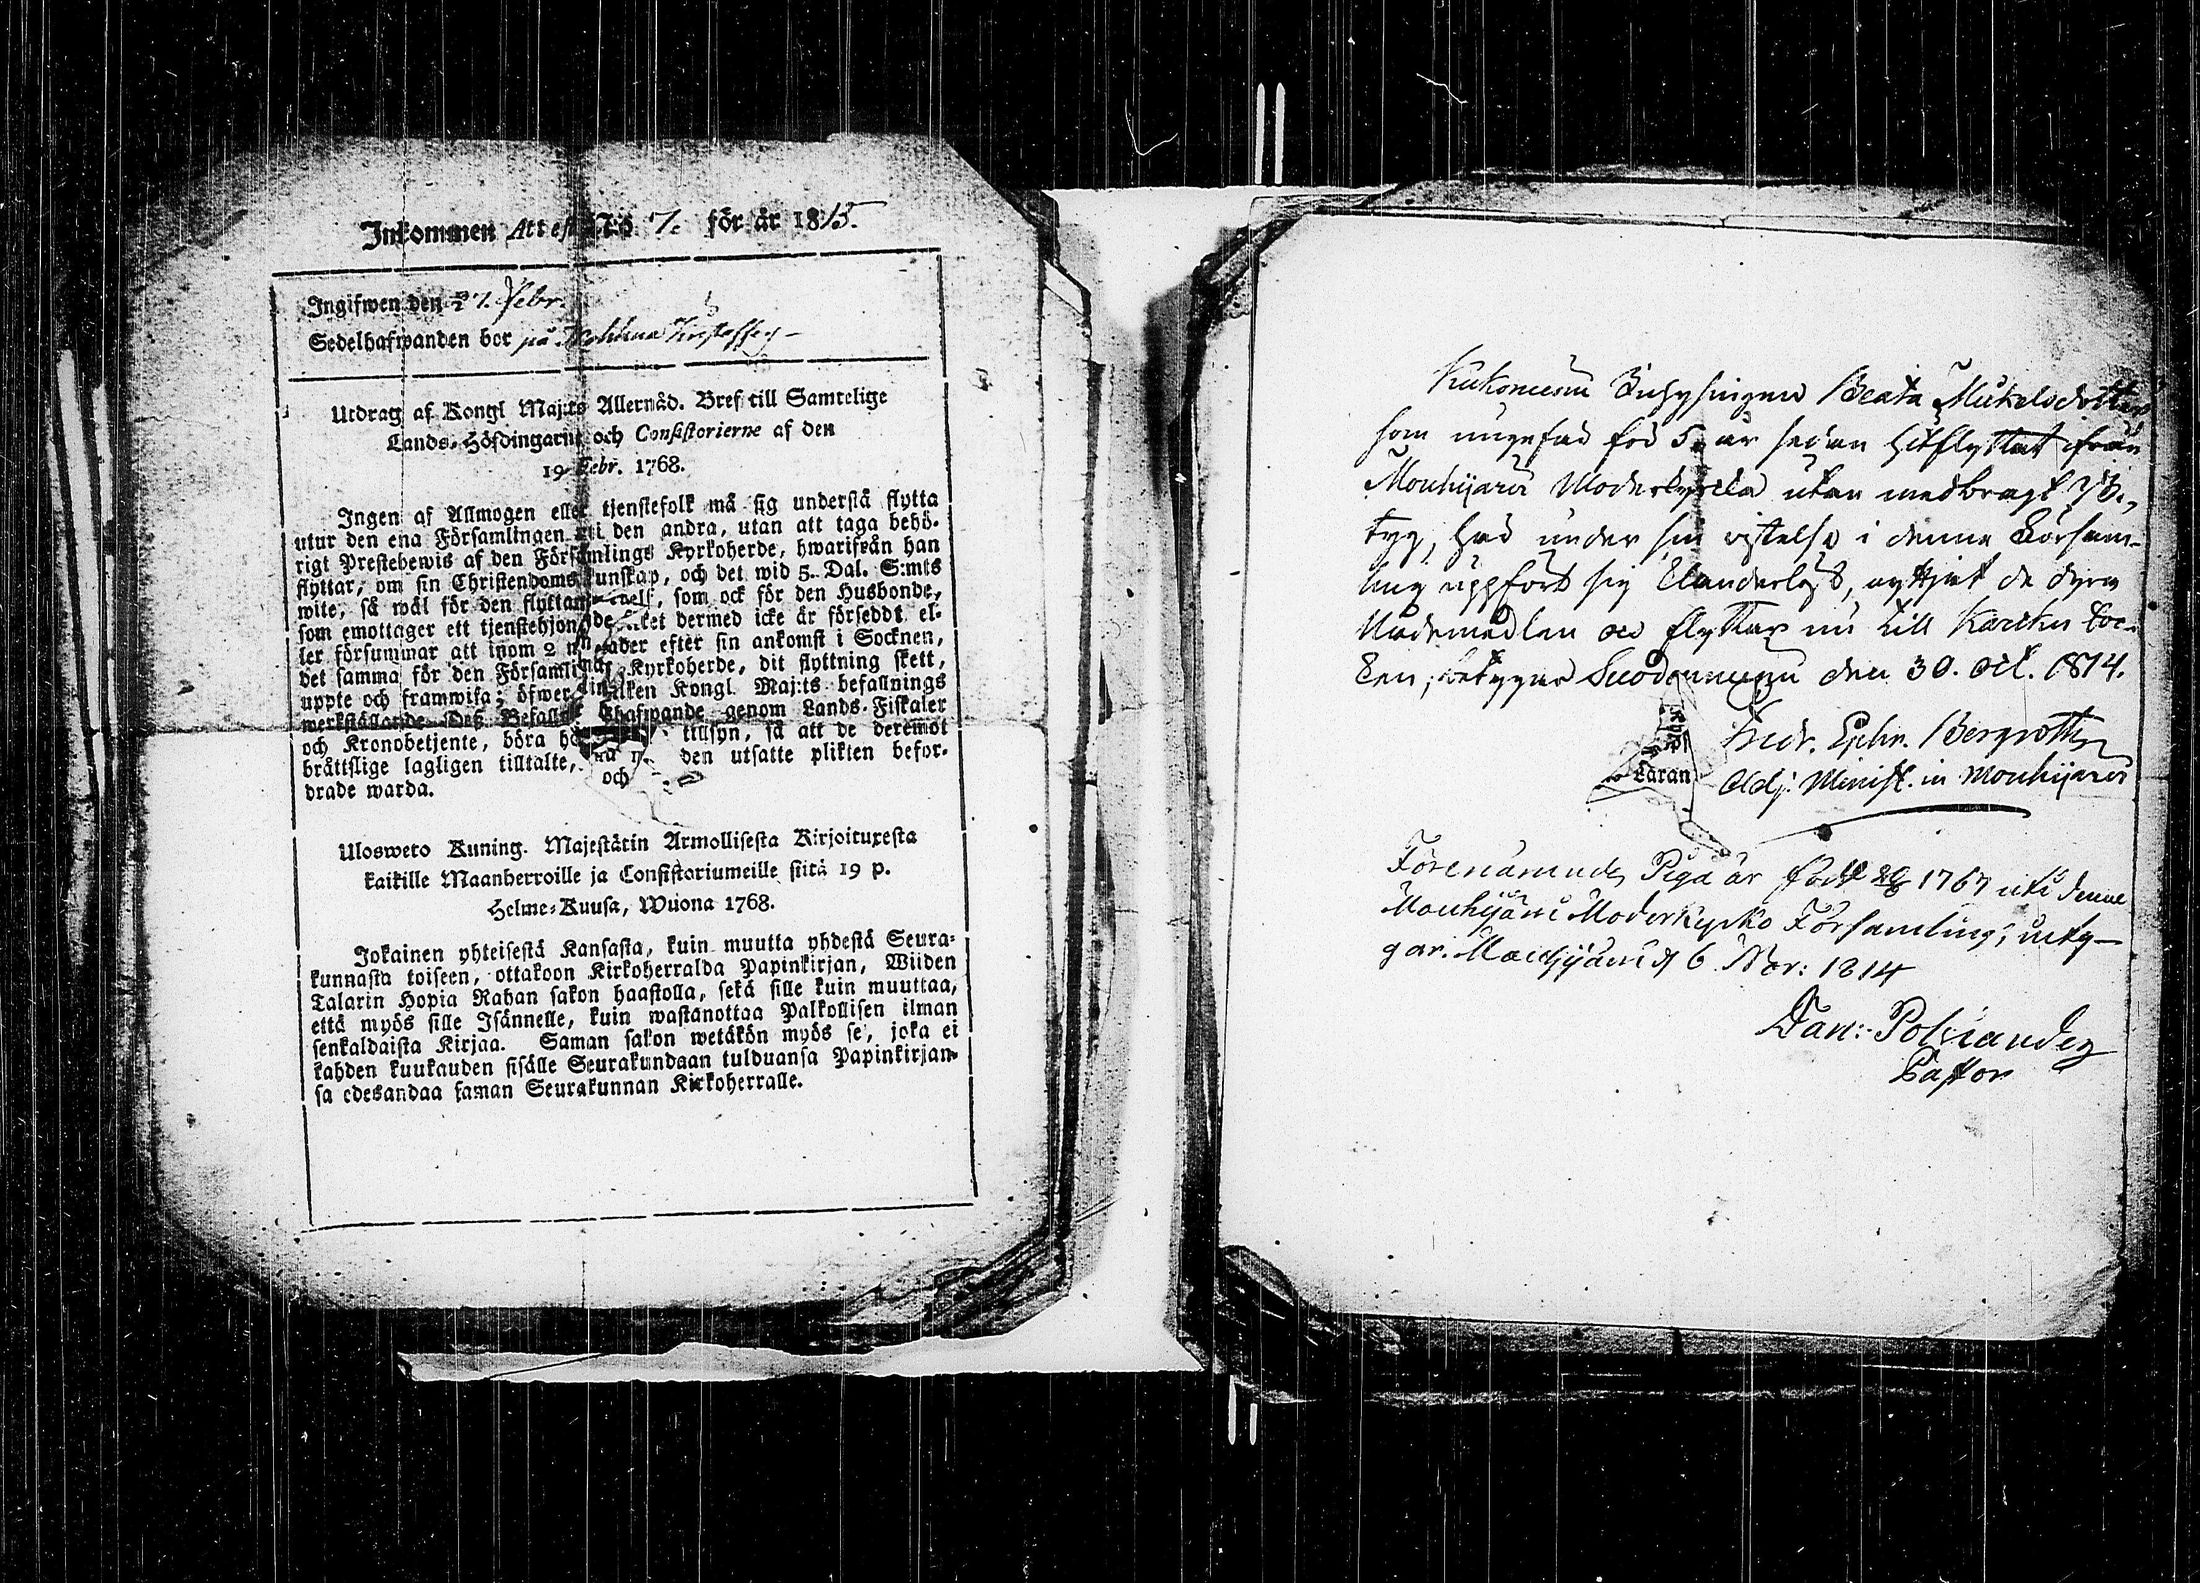 Inkommen Attest N:o 7. för år 1815.
Ingifwen den 27. Febr.
Sedelhafwanden bor på
Utdrag af Kongl Maj:ts Allernåd. Bref till Samtelige
Lands-Höfdingarne och Consistorierne af den
19 Febr. 1768.
Ingen af Allmogen eller tjenstefolk må sig understå flytta
utur den ena Församlingen till den andra, utan att taga behö-
rigt Prestebewis af den Församlings Kyrkoherde, hwarifrån han
flyttar, om sin Christendoms kunskap, och det wid 5. Dal. S:mts
wite, så wäl för den flyttande sjelf, som ock för den Husbonde,
som emottager ett tjenstehjon, det dermed icke är försedd, el-
ler försummar att inom 2 månader efter sin ankomst i Socknen,
det samma för den Församlings Kyrkoherde, dit flyttning skett,
uppte och framwisa; öfwer hwilken Kongl. Maj:ts befallnings
werkställande Dess Befallningshafwande genom Lands-Fiskaler
och Kronobetjente, böra hafwa tillsyn, så att de deremot
bråttslige lagligen tilltalte, och den utsatte plikten befor-
drade warda.
Ulosweto Kuning. Majestätin Armollisesta Kirjoituxesta
kaikille Maanherroille ja Consistoriumeille siitä 19 p.
Helme-Kuusa, Wuona 1768.
Jokainen yhteisestä Kansasta, kuin muutta yhdestä Seura-
kunnasta toiseen, ottakoon Kirkoherralda Papinkirjan, Wiiden
Talarin Hopia Rahan sakon haastolla, sekä sille kuin muuttaa,
että myös sille Isännelle, kuin wastanottaa Palkollisen ilman
senkaldaista Kirjaa. Saman sakon wetäkön myös se, joka ei
kahden kuukauden sisälle Seurakundaan tulduansa Papinkirjan-
sa edesandaa saman Seurakunnan Kirkoherralle.
Inhysingen Beata Mickelsdotter
som ungefär för 5 år sedan hitflyttat ifrån
Mouhijärvi Moderkyrka utan medbragt Be-
tyg, har under sin vistelse i denna Försam-
ling uppfört sig Clanderlöst, nyttjat de dyra
Nådemedlen och flyttar nu till Karcku Soc-
ken, betygar Suodenniemi den 30. Oct. 1814.
Fredr. Ephr. Bergroth
Adj. Minist. in Mouhijärvi
Läran
Förenämnde Piga är född 1767 uti denne
Mouhijärvi Moderkyrko Församling, bety-
gar. Mouhijärvi d. 6 Nov: 1814
Dan: Polviander
Pastor